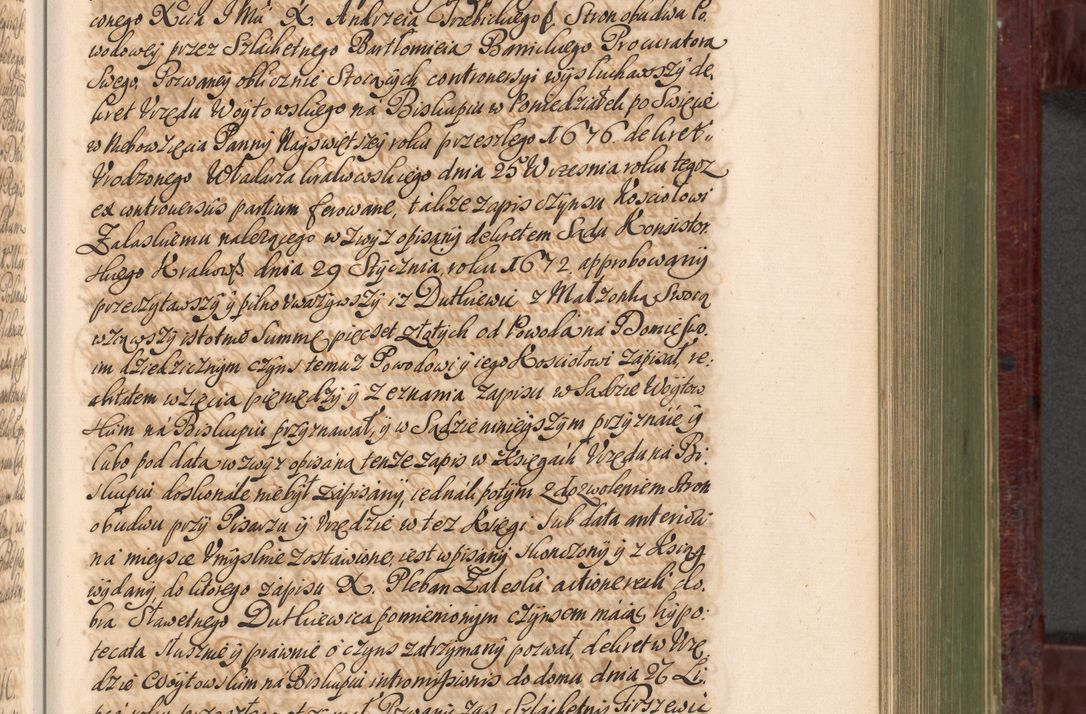 conego Xcia J Mci X. Andrzeia Trzebickiego Stron obudwa Po.
wodowey przez Szlachetnego Bartłomieia Banickiego Procuratora
Swego. Pozwaney oblicznie Stocących controversyi wysłuchawszy de,
kret Urzędu Woytowskiego na Biskupiu w Poniedziałek po Swięcie
w Niebowzięcia Panny Nayswiętszey roku przeszłego 1676. dekret„
Urodzonego Władarza krakowskiego dnia 25 Wrzesnia roku tegoz
ex controversiis partium ferowane, takze zapis czynsu Kosciołowi
Zalaskiemu nalezącego wzwyz opisany dekretem Sądu Konsistor
skiego Krakows dnia 29 Stycznia roku 1672. approbowany
przeczytawszy y pilno uwazywszy iz Dutkiewic z Małzonką Swocą
wziąwszy istotnie Summę pięcset złotych od Powoda na Domie swo
im dziedzicznym czyns temuz Powodowi y iego Kosciołowi zapisał, re:
abitatem wzięcia pieniędzy y zeznania zapisu w Sądzie Woytow
skim ná Biskupiu przyznawał, y w Sądzie ninieyszym przyznáie y
lubo pod datą wzwyz opisaną tenze zapis w Xsięgach Urzędu na Bi.
skupiu doskonale nie był zapisany, iednak potym z dozwoleniem Stron
obudwu przy Pisarzu y Urzędzie w tez Xsięgi Sub data anteriori
ná mieysce Umyslnie zostawione, iest wpisany skonczony y z Xsiąg
wydany do ktorego zapisu X. Pleban Zaleski actione reali do.
bra Sławetnego Dutkiewica pomienionym czynsem máiąc hypo:
tecata słusznie y prawnie o czyns zatrzymany pozwał, dekret w Urzę
dzie Woytowskim na Biskupiu intromissionis do domu dnia 26 Li.